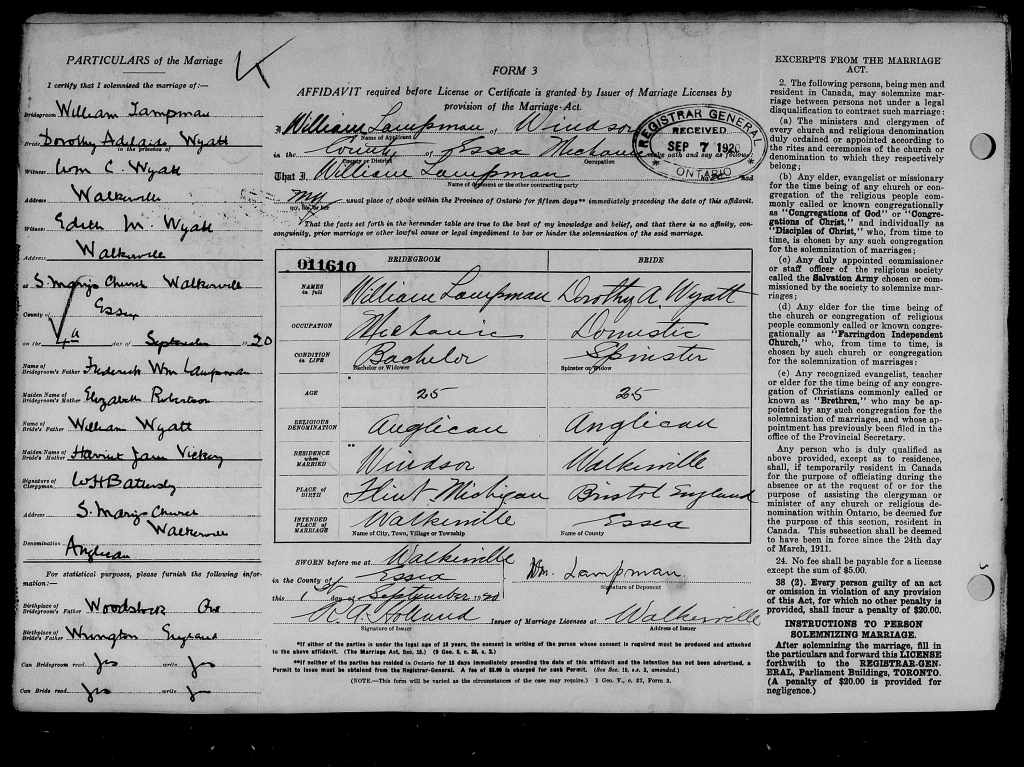 PARTICULARS of the Marriage
I certify that I solemnized the marriage of:—
Bridegroom William Lampman
Bride Dorothy Adelaide Wyatt
in the presence of
Witness Wm C. Wyatt
Address Walkerville
Witness Edith M. Wyatt
Address Walkerville
at S. Mary's Church Walkerville
County of Essex
on the 4th day of September 1920
Name of Bridegroom's Father Frederick Wm Lampman
Maiden Name of Bridegroom's Mother Elizabeth Robertson
Name of Bride's Father William Wyatt
Maiden Name of Bride's Mother Harriet Jane Vickery
Signature of Clergyman W H Battersby
Address S. Mary's Church
Walkerville
Denomination Anglican
For statistical purposes, please furnish the following information:—
Birthplace of Bridegroom's Father Woodstock Ont
Birthplace of Bride's Father Wrington England
Can Bridegroom read yes write yes
Can Bride read yes write yes
FORM 3
AFFIDAVIT required before License or Certificate is granted by Issuer of Marriage Licenses by
provision of the Marriage Act.
I, William Lampman of Windsor
Name of Applicant
in the County of Essex Mechanic make oath and say as follows:
County or District Occupation
That I, William Lampman
Name of deponent or the other contracting party
my usual place of abode within the Province of Ontario for fifteen days** immediately preceding the date of this affidavit.
my, his or her
That the facts set forth in the hereunder table are true to the best of my knowledge and belief, and that there is no affinity, con-
sanguinity, prior marriage or other lawful cause or legal impediment to bar or hinder the solemnisation of the said marriage.
REGISTRAR GENERAL
RECEIVED
SEP 7 1920
ONTARIO
011610
BRIDEGROOM BRIDE
NAMES in full William Lampman Dorothy A. Wyatt
OCCUPATION Mechanic Domestic
CONDITION in LIFE Bachelor Spinster
Bachelor or Widower Spinster or Widow
AGE 25 25
RELIGIOUS DENOMINATION Anglican Anglican
RESIDENCE when MARRIED Windsor Walkerville
PLACE OF BIRTH Flint Michigan Bristol England
INTENDED PLACE OF MARRIAGE Walkerville Essex
Name of City, Town, Village or Township Name of County
SWORN before me at Walkerville
in the County of Essex
this 1st day of September 1920
Wm. Lampman
Signature of Deponent
R. A. Holland Issuer of Marriage Licenses at Walkerville
Signature of Issuer Address of Issuer
*If either of the parties is under the legal age of 18 years, the consent in writing of the person whose consent is required must be produced and attached
to the above affidavit. (The Marriage Act, Sec. 15.)
**If neither of the parties has resided in Ontario for 15 days immediately preceding the date of this affidavit and the intention has not been advertised, a
Permit to issue must be obtained from the Registrar-General. A fee of $5.00 is charged for such Permit.
(NOTE.—This form will be varied as the circumstances of the case may require.) 1 Geo. V., c. 37, Form 3.
EXCERPTS FROM THE MARRIAGE
ACT.
2. The following persons, being men and
resident in Canada, may solemnize mar-
riage between persons not under a legal
disqualification to contract such marriage:
(a) The ministers and clergymen of
every church and religious denomination
duly ordained or appointed according to
the rites and ceremonies of the church or
denomination to which they respectively
belong;
(b) Any elder, evangelist or missionary
for the time being of any church or con-
gregation of the religious people com-
monly called or known congregationally
as "Congregations of God" or "Congre-
gations of Christ," and individually as
"Disciples of Christ," who, from time to
time, is chosen by any such congregation
for the solemnization of marriages;
(c) Any duly appointed commissioner
or staff officer of the religious society
called the Salvation Army chosen or com-
missioned by the society to solemnize mar-
riages;
(d) Any elder for the time being of
the church or congregation of religious
people commonly called or known congre-
gationally as "Farringdon Independent
Church," who, from time to time, is
chosen by such church or congregation
for the solemnization of marriages:
(e) Any recognized evangelist, teacher
or elder for the time being of any congre-
gation of Christians commonly called or
known as "Brethren," who may be ap-
pointed by any such congregation for the
solemnization of marriages, and whose ap-
pointment has previously been filed in the
office of the Provincial Secretary.
Any person who is duly qualified as
above provided, except as to residence,
shall, if temporarily resident in Canada
for the purpose of officiating during the
absence or at the request of or for the
purpose of assisting the clergyman or
minister of any church or religious de-
nomination within Ontario, be deemed for
the purpose of this section, resident in
Canada. This subsection shall be deemed
to have been in force since the 24th day
of March, 1911.
24. No fee shall be payable for a license
except the sum of $5.00.
38 (2). Every person guilty of an act
or omission in violation of any provision
of this Act, for which no other penalty is
provided, shall incur a penalty of $20.00.
INSTRUCTIONS TO PERSON
SOLEMNIZING MARRIAGE.
After solemnizing the marriage, fill in
the particulars and forward this LICENSE
forthwith to the REGISTRAR-GEN-
ERAL, Parliament Buildings, TORONTO.
(A penalty of $20.00 is provided for
negligence.)